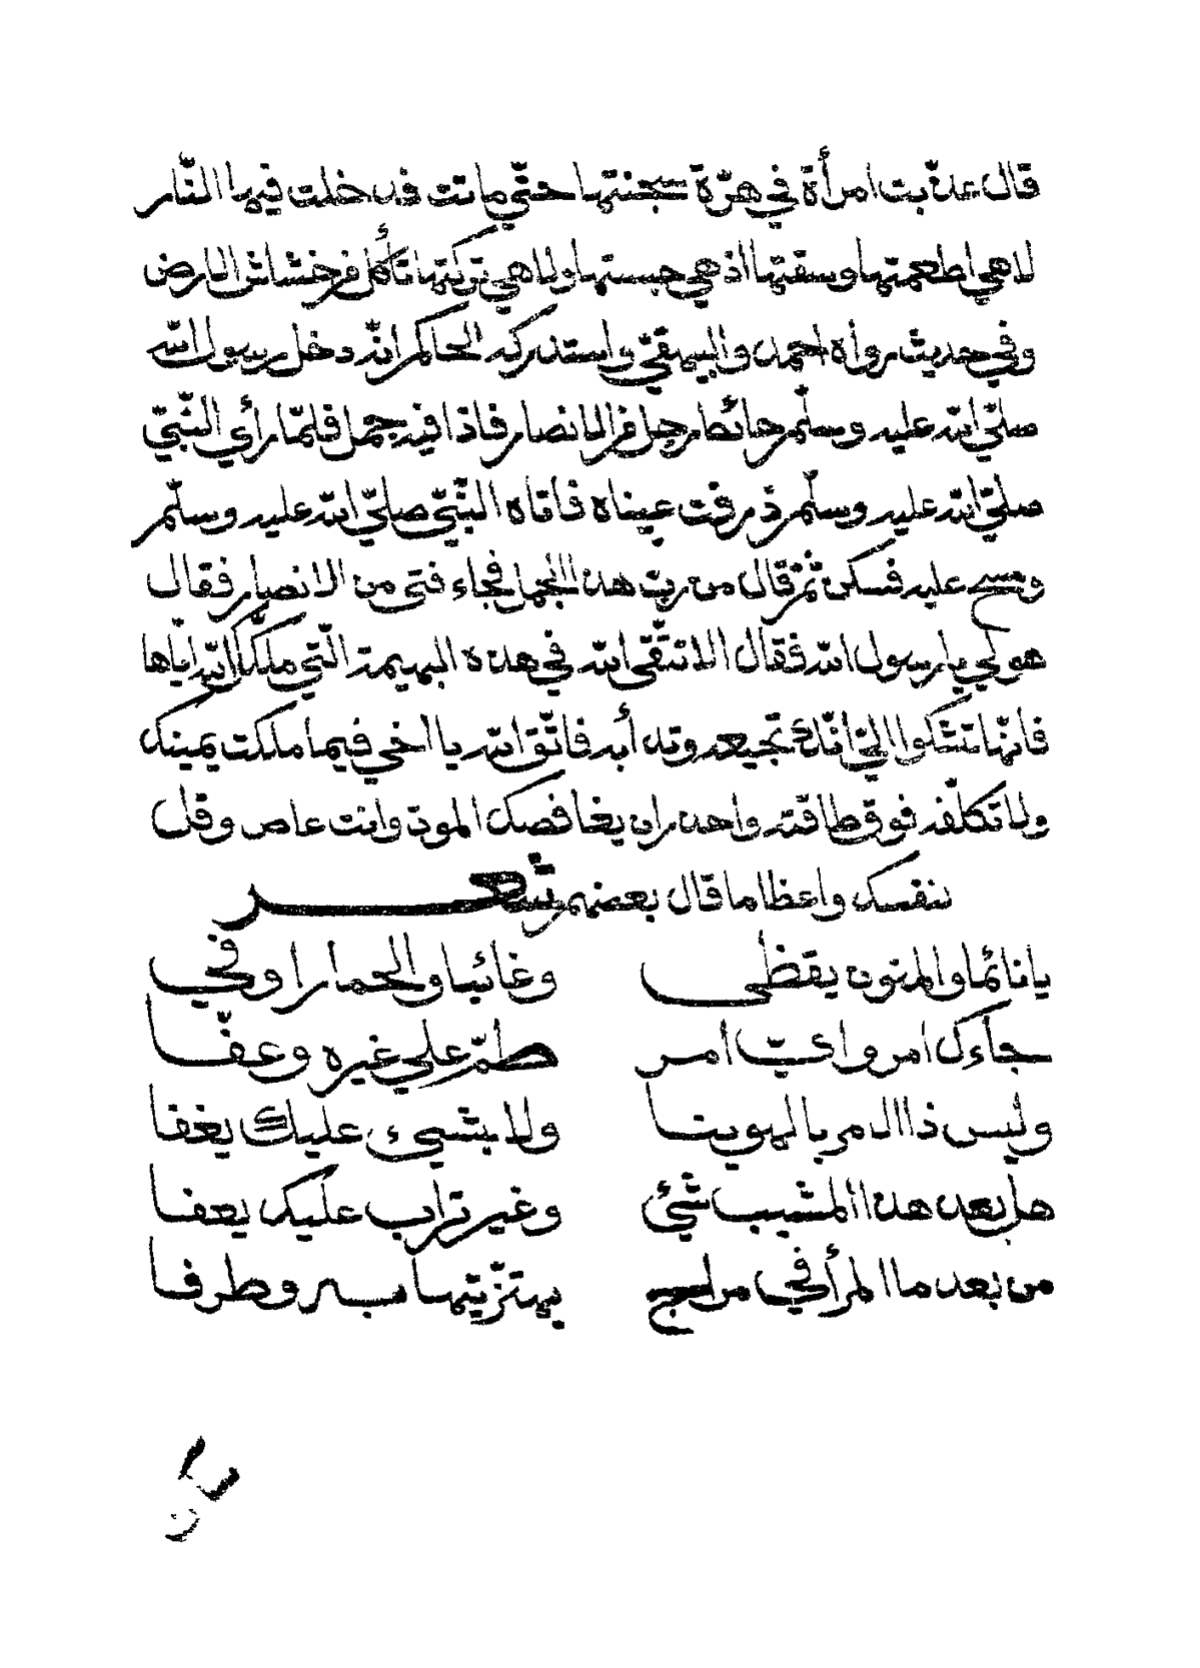 قال عذّبت امرأة في هرّة سجنتها حتّي ماتت فدخلت فيها النّار
لاهي اطعمتها وسقتها اذ هي حبستها ولا هي تركتها تأكل من خشاش الارض
وفي حديث رواه احمد والبيهقيّ واستدركه الحاكم انّه دخل رسول اللّه
صلّي اللّه عليه وسلّم حائط رجل من الانصار فاذا فيه جمل فلمّا رأي النّبيّ
صلّيّ اللّه عليه وسلّم ذرفت عيناه فأتاه النّبيّ صلّيّ اللّه عليه وسلّم
ومسح عليه فسكن ثمّ قال من ربّ هذا الجمل فجاء فتى من الانصار فقال
هو لي يا رسول اللّه فقال الا تتّقى اللّه في هذه البهيمة الّتي ملّكك اللّه ايّاها
فانّها تشكوا اليّ انّك تجيعه وتدأبه فاتّق اللّه يا اخي فيما ملكت يمينك
ولا تكلّفه فوق طاقته واحذر ان يغافصك الموت وانت عاص وقل
لنفسك واعظا ما قال بعضهم شعر
يا نائما والمنون يقظى وغائبا والحمام اوفي
جاءك امر وايّ امر طمّ علي غيره وعفّا
وليس ذا الامر بالهوينا ولا بشيء عليك يخفا
هل بعد هذا المشيب شئ وغير تراب عليك يعفا
من بعد ما المرأ في مراح يهتزّ تيها به وطرفا